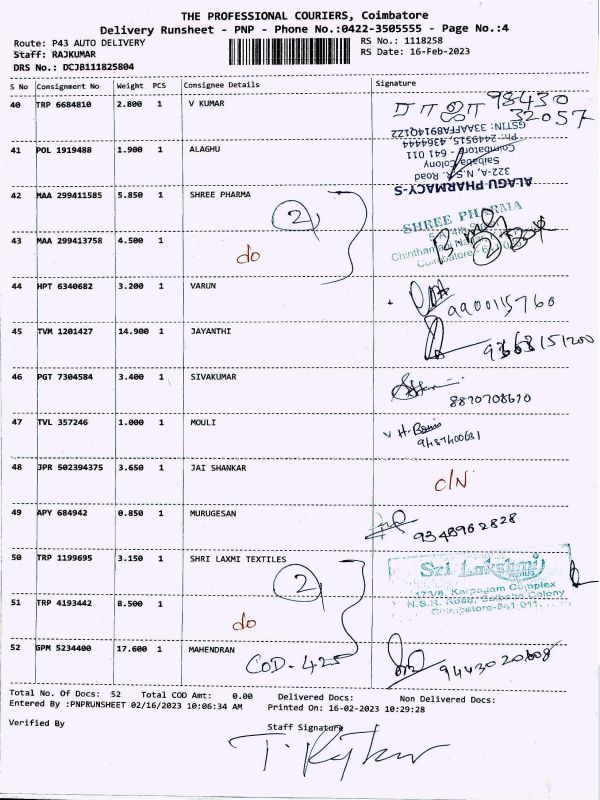 THE PROFESSIONAL COURIERS, Coimbatore
Delivery Runsheet - PNP - Phone No.:0422-3505555 - Page No.:4
Route: P43 AUTO DELIVERY RS No.: 1118258
Staff: RAJKUMAR RS Date: 16-Feb-2023
DRS No.: DCJB111825804
S No Consignment No Weight PCS Consignee Details Signature
40 TRP 6684810 2.800 1 V KUMAR 98430
32057
41 POL 1919488 1.900 1 ALAGHU
ALAGU PHARMACY-S
322-A, N.S.R. Road,
Saibaba Colony
Coimbatore - 641 011
Ph: 2449515, 4364444
GSTIN: 33AAFFA8914Q1ZZ
42 MAA 299411585 5.850 1 SHREE PHARMA 2
SHREE PHARMA
43 MAA 299413758 4.500 1 do
Coimbatore
2 Box
44 HPT 6340682 3.200 1 VARUN 9900115760
45 TVM 1201427 14.900 1 JAYANTHI 9363151200
46 PGT 7304584 3.400 1 SIVAKUMAR 8870708610
47 TVL 357246 1.000 1 MOULI
48 JPR 502394375 3.650 1 JAI SHANKAR C/N
49 APY 684942 0.850 1 MURUGESAN 9348962828
50 TRP 1199695 3.150 1 SHRI LAXMI TEXTILES 2
Sri Lakshmi
171/8, Karpagam Complex
N.S.R. Road, Saibaba Colony
Coimbatore-641 011.
51 TRP 4193442 8.500 1 do
52 GPM 5234400 17.600 1 MAHENDRAN COD-425 9443020608
Total No. Of Docs: 52 Total COD Amt: 0.00 Delivered Docs: Non Delivered Docs:
Entered By :PNPRUNSHEET 02/16/2023 10:06:34 AM Printed On: 16-02-2023 10:29:28
Verified By Staff Signature